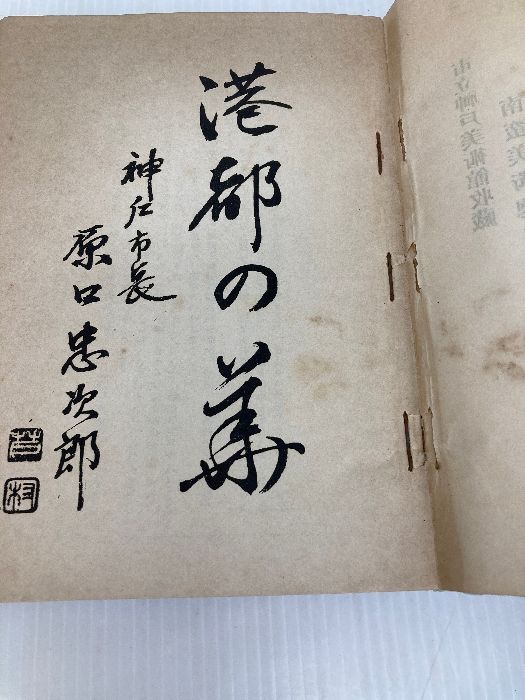 市立神戸美術館収蔵
南蛮美術
港都の華
神戸市長
原口忠次郎